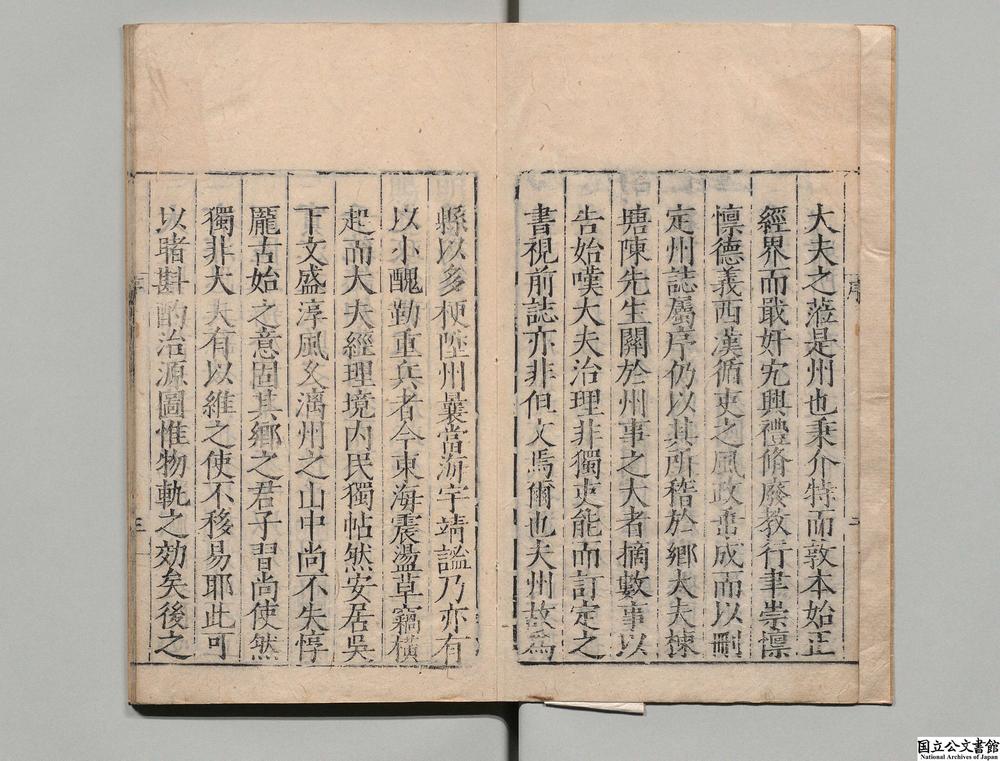 大夫之蒞是州也秉介特而敦本始正
經界而戢奸宄興禮脩廢教行聿崇懔
懔德義西漢循吏之風政垂成而以刪
定州誌屬序仍以其所稽於鄉大夫棟
塘陳先生關於州事之大者摘數事以
告始嘆大夫治理非獨吏能而訂定之
書視前誌亦非但文焉爾也夫州故爲
縣以多梗陞州曩當海宇靖謐乃亦有
以小醜勤重兵者今東海震盪草竊橫
起而大夫經理境内民獨帖然安居吳
下文盛淳風义漓州之山中尚不失惇
龎古始之意固其鄉之君子習尚使然
獨非大夫有以維之使不移易耶此可
以睹斟酌治源圖惟物軌之効矣後之
序
三
国立公文書館
National Archives of Japan